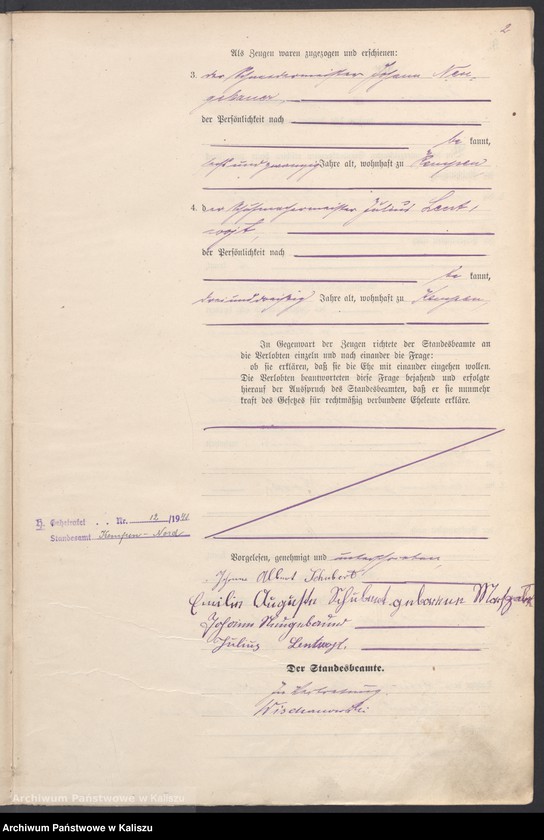 2
Als Zeugen waren zugezogen und erschienen:
3. der Schneidermeister Johann Neu-
gebauer,
der Persönlichkeit nach
be kannt,
sechsundzwanzig Jahre alt, wohnhaft zu Kempen
4. der Schuhmachermeister Julius Lent-
vogt,
der Persönlichkeit nach
be kannt,
dreiunddreißig Jahre alt, wohnhaft zu Kempen
In Gegenwart der Zeugen richtete der Standesbeamte an
die Verlobten einzeln und nach einander die Frage:
ob sie erklären, daß sie die Ehe mit einander eingehen wollen.
Die Verlobten beantworteten diese Frage bejahend und erfolgte
hierauf der Ausspruch des Standesbeamten, daß er sie nunmehr
kraft des Gesetzes für rechtmäßig verbundene Eheleute erkläre.
H. Nr. 12 /1941
Standesamt Kempen-Nord
Vorgelesen, genehmigt und unterschrieben
Johann Albert Schubert
Emilie Auguste Schubert geborene
Johann Neugebauer
Julius Lentvogt.
Der Standesbeamte.
In Vertretung.
Archiwum Państwowe w Kaliszu
Archiwum Państwowe w Kaliszu